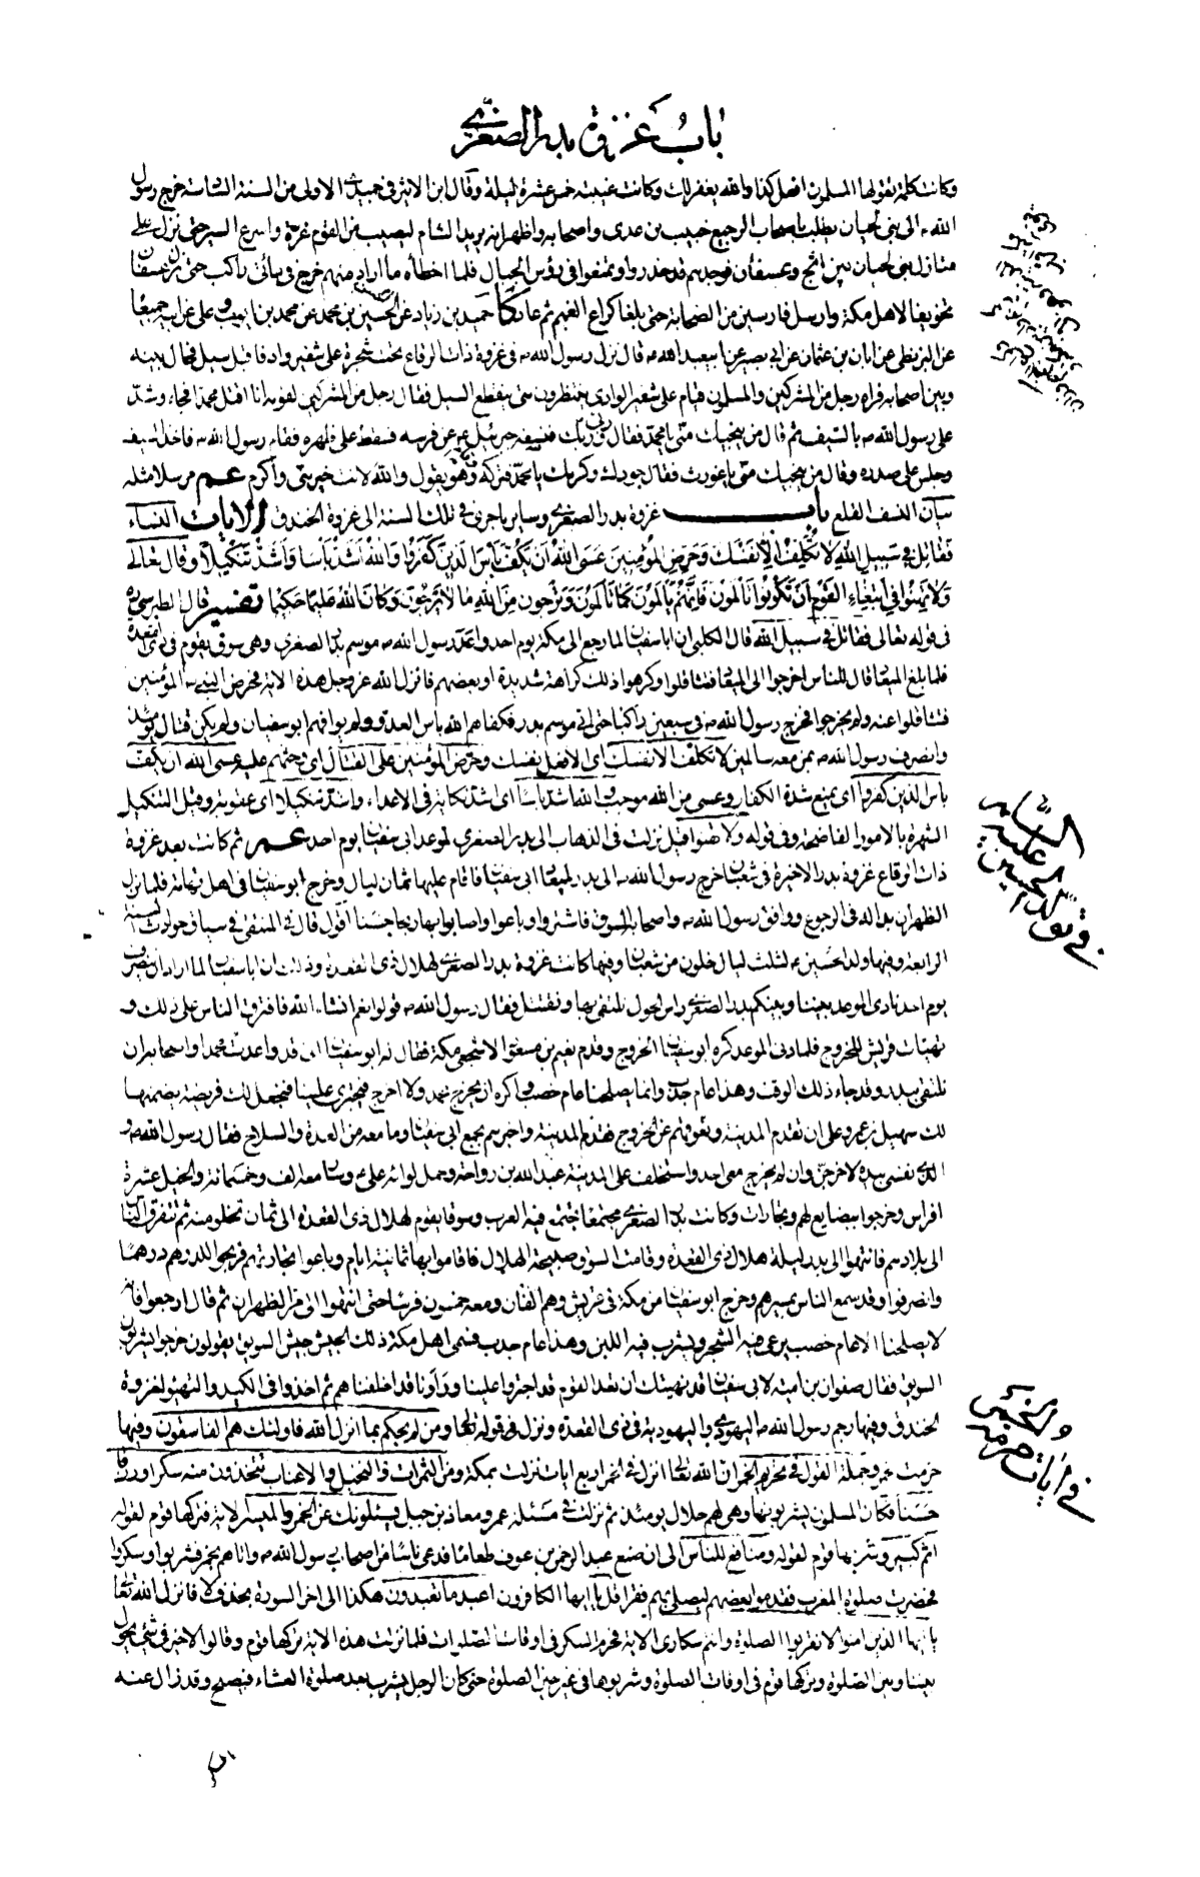 باب غزوة بدر الصغرى
وكانت كلمة يقولها المسلمون افعل كذا والله يغفر لك وكانت غيبته خمس عشرة ليلة وقال ابن الاثير في جميدى الاولى من السنة السادسة خرج رسول
الله ص الى بني لحيان يطلب باصحاب الرجيع خبيب بن عدى واصحابه واظهر انه يريد الشام ليصيب من القوم غرة واسرع السير حتى نزل على
منازل بني لحيان بين امج وعسفان فوجدهم قد حذروا وتمنعوا في رؤس الجبال فلما اخطأه ما اراد منهم خرج في مائتى راكب حتى نزل عسفان
تخويفا لاهل مكة وارسل فارسين من الصحابة حتى بلغا كراع الغميم ثم عاد كا حميد بن زياد عن الحسين بن محمد عن محمد بن ايوب وعلى عن ابيه جميعا
عن البزنطى عن ابان بن عثمان عن ابي بصير عن ابيعبد الله ع قال نزل رسول الله ص في غزوة ذات الرقاع تحت شجرة على شفير واد فاقبل سيل فحال بينه
وبين اصحابه فراه رجل من المشركين والمسلمون قيام على شفير الوادى ينتظرون متى ينقطع السيل فقال رجل من المشركين لقومه انا اقتل محمدا فجاء وشد
على رسول الله ص بالسيف ثم قال من ينجيك منى يا محمد فقال ربى وربك فنسفه جبرئيل ع عن فرسه فسقط على ظهره فقام رسول الله ص فاخذ السيف
وجلس على صدره وقال من ينجيك منى يا غورث فقال جودك وكرمك يا محمد فتركه وهو يقول والله لانت خير منى واكرم عم مرسلا مثله
بيان النسف القلع باب غزوة بدر الصغرى وساير ما جرى في تلك السنة الى غزوة الخندق الايات النساء
فَقَاتِلْ فِي سَبِيلِ اللهِ لَا تُكَلَّفُ إِلَّا نَفْسَكَ وَحَرِّضِ الْمُؤْمِنِينَ عَسَى اللهُ أَنْ يَكُفَّ بَأْسَ الَّذِينَ كَفَرُوا وَاللهُ أَشَدُّ بَأْسًا وَأَشَدُّ تَنْكِيلًا وقال تعالى
وَلَا تَهِنُوا فِي ابْتِغَاءِ الْقَوْمِ إِنْ تَكُونُوا تَأْلَمُونَ فَإِنَّهُمْ يَأْلَمُونَ كَمَا تَأْلَمُونَ وَتَرْجُونَ مِنَ اللهِ مَا لَا يَرْجُونَ وَكَانَ اللهُ عَلِيمًا حَكِيمًا تفسير قال الطبرسي ره
في قوله تعالى فقاتل في سبيل الله قال الكلبي ان ابا سفيان لما رجع الى مكة يوم احد واعد رسول الله ص موسم بدر الصغرى وهى سوق يقوم في ذى القعدة
فلما بلغ الميعاد قال للناس اخرجوا الى الميعاد فتثاقلوا وكرهوا ذلك كراهة شديدة او بعضهم فانزل الله عز وجل هذه الاية فحرض النبي ص المؤمنين
فتثاقلوا عنه ولم يخرجوا فخرج رسول الله ص في سبعين راكبا حتى اتى موسم بدر فكفاهم الله بأس العدو ولم يوافهم ابو سفيان ولم يكن قتال يومئذ
وانصرف رسول الله ص بمن معه سالمين لا تكلف الا نفسك اى الا فعل نفسك وحرض المؤمنين على القتال اى حثهم عليه عسى الله ان يكف
بأس الذين كفروا اى يمنع شدة الكفار وعسى من الله موجب والله اشد بأسا اى اشد نكاية في الاعداء واشد تنكيلا اى عقوبة وقيل التنكيل
الشهرة بالامور الفاضحة وفي قوله ولا تهنوا قيل نزلت في الذهاب الى بدر الصغرى لموعد ابى سفيان يوم احد عم ثم كانت بعد غزوة
ذات الرقاع غزوة بدر الاخيرة في شعبان خرج رسول الله ص الى بدر لميعاد ابى سفيان فاقام عليها ثمان ليال وخرج ابو سفيان في اهل تهامة فلما نزل
الظهران بدا له في الرجوع ووافق رسول الله ص واصحابه السوق فاشتروا وباعوا واصابوا بها ربحا حسنا اقول قال في المنتقى في سياق حوادث السنة
الرابعة وفيها ولد الحسين ع لثلث ليال خلون من شعبان وفيها كانت غزوة بدر الصغرى لهلال ذى القعدة وذلك ان ابا سفيان لما اراد ان ينصرف
يوم احد نادى الموعد بيننا وبينكم بدر الصغرى راس الحول نلتقى بها ونقتتل فقال رسول الله ص قولوا نعم انشاء الله فافترق الناس على ذلك و
تهيات قريش للخروج فلما دنى الموعد كره ابو سفيان الخروج وقدم نعيم بن مسعود الاشجعي مكة فقال له ابو سفيان انى قد واعدت محمدا واصحابه ان
نلتقى ببدر وقد جاء ذلك الوقت وهذا عام جدب وانما يصلحنا عام خصب واكره ان يخرج محمد ولا اخرج فيجترى علينا فنجعل لك فريضة يضمنها
لك سهيل بن عمرو على ان تقدم المدينة وتعوقهم عن الخروج فقدم المدينة واخبرهم بجمع ابى سفيان وما معه من العدة والسلاح فقال رسول الله ص و
الذى نفسى بيده لاخرجن وان لم يخرج معى احد واستخلف على المدينة عبد الله بن رواحة وحمل لوائه على ع وسار معه الف وخمسمائة والخيل عشرة
افراس وخرجوا ببضايع لهم وتجارات وكانت بدر الصغرى مجتمعا تجتمع فيه العرب وسوقا يقوم لهلال ذى القعدة الى ثمان تخلو منه ثم تتفرق الناس
الى بلادهم فانتهوا الى بدر ليلة هلال ذى القعدة وقامت السوق صبيحة الهلال فاقاموا بها ثمانية ايام وباعوا تجارتهم فربحوا للدرهم درهما
وانصرفوا وقد سمع الناس بمسيرهم وخرج ابو سفيان من مكة في قريش وهم الفان ومعه خمسون فرسا حتى انتهوا الى مر الظهران ثم قال ارجعوا فانه
لا يصلحنا الا عام خصب يرعى فيه الشجر ويشرب فيه اللبن وهذا عام جدب فسمى اهل مكة ذلك الجيش جيش السويق يقولون خرجوا يشربون
السويق فقال صفوان بن امية لابى سفيان قد نهيتك ان تعد القوم قد اجتروا علينا ورأونا قد اخلفناهم ثم اخذوا في الكيد والتهيؤ لغزوة
الخندق وفيها رجم رسول الله ص اليهودى واليهودية في ذى القعدة ونزل في قوله تعالى ومن لم يحكم بما انزل الله فاولئك هم الفاسقون وفيها
حرمت الخمر وجملة القول في تحريم الخمر ان الله تعالى انزل في الخمر اربع ايات نزلت بمكة ومن ثمرات النخيل والاعناب تتخذون منه سكرا ورزقا
حسنا فكان المسلمون يشربونها وهى لهم حلال يومئذ ثم نزلت في مسئلة عمر ومعاذ بن جبل يسئلونك عن الخمر والميسر الاية فتركها قوم لقوله
اثم كبير وشربها قوم لقوله ومنافع للناس الى ان صنع عبد الرحمن بن عوف طعاما فدعى ناسا من اصحاب رسول الله ص واتاهم بخمر فشربوا وسكروا
فحضرت صلوة المغرب فقدموا بعضهم ليصلى بهم فقرأ قل يا ايها الكافرون اعبد ما تعبدون هكذا الى اخر السورة بحذف لا فانزل الله تعالى
يا ايها الذين امنوا لا تقربوا الصلوة وانتم سكارى الاية فحرم السكر في اوقات الصلوات فلما نزلت هذه الاية تركها قوم وقالوا لا خير في شئ يحول
بيننا وبين الصلوة وتركها قوم في اوقات الصلوة وشربوها في غير حين الصلوة حتى كان الرجل يشرب بعد صلوة العشاء فيصبح وقد زال عنه
في تولد الحسين عليه السلام
في ايات حرمة الخمر